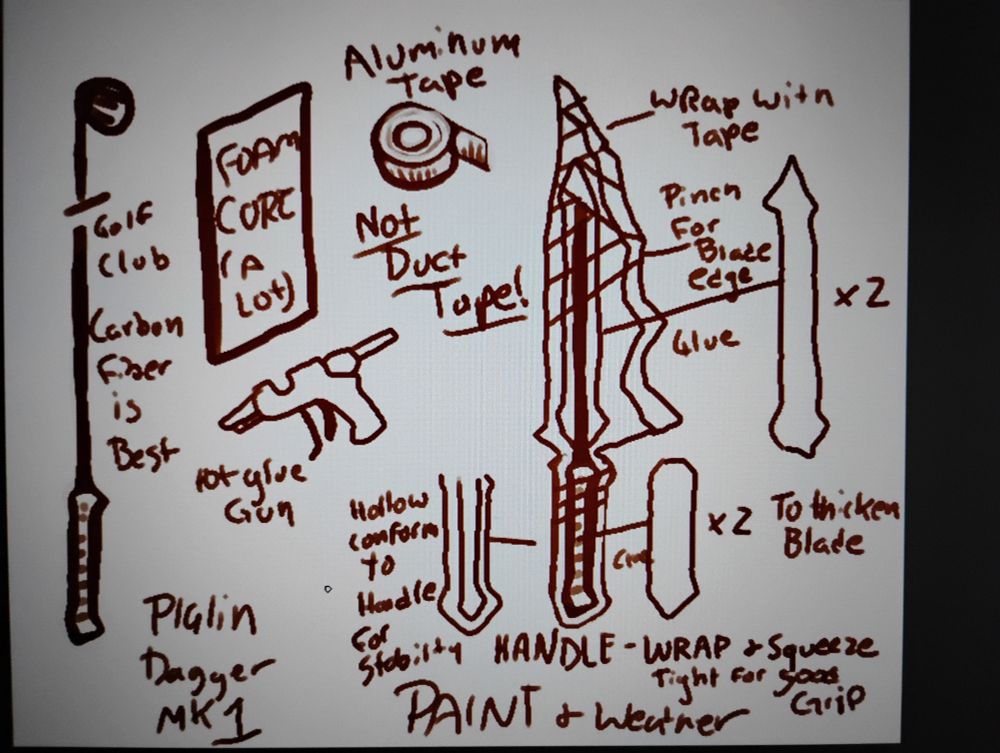 Aluminum
Tape
FOAM
CORE
(A
Lot)
Golf
Club
Carbon
Fiber
is
Best
Not
Duct
Tape!
Hot glue
Gun
WRap With
Tape
Pinch
For
Blade
edge
x2
Glue
Hollow
conform
to
Handle
For
Stability
Glue
x2
To thicken
Blade
HANDLE - WRAP & Squeeze
Tight For good
Grip
Piglin
Dagger
MK1
PAINT & Weather